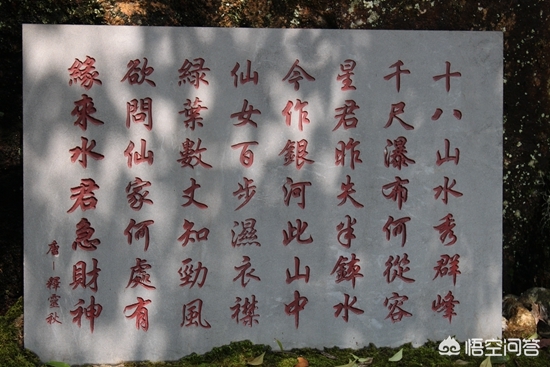 十八山水秀群峰
千尺瀑布何從容
星君昨失半缽水
今作銀河此山中
仙女百步濕衣襟
綠葉數丈知勁風
欲問仙家何處有
緣來水君急財神
唐一釋靈秋
悟空问答